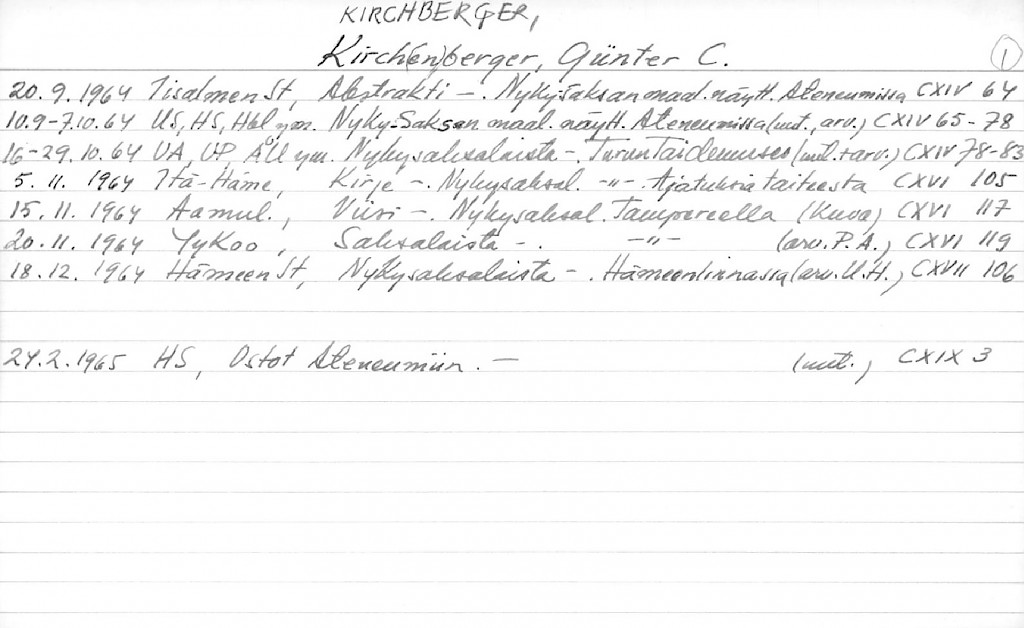 KIRCHBERGER,
Kirch(en)berger, Günter C. 1
20.9.1964 Iisalmen St, Abstrakti -. Nyky-Saksan maal. näytt. Ateneumissa CXIV 64
10.9-7.10.64 US, HS, Hbl ym. Nyky-Saksan maal. näytt. Ateneumissa (uut., arv.) CXIV 65-78
16-29.10.64 UA, UP, ÅU ym. Nykysaksalaista -. Turun Taidemuseo (uut.+arv.) CXIV 78-83
5.11.1964 Itä-Häme, Kirje -. Nykysaksal. -"- Ajatuksia taiteesta CXVI 105
15.11.1964 Aamul., Viiri -. Nykysaksal. Tampereella (Kuva) CXVI 117
20.11.1964 JyKoo, Saksalaista -. -"- (arv. P.A.) CXVI 119
18.12.1964 Hämeen St, Nykysaksalaista -. Hämeenlinnassa (arv. U.H.) CXVII 106
24.2.1965 HS, Ostot Ateneumiin. — (uut.) CXIX 3